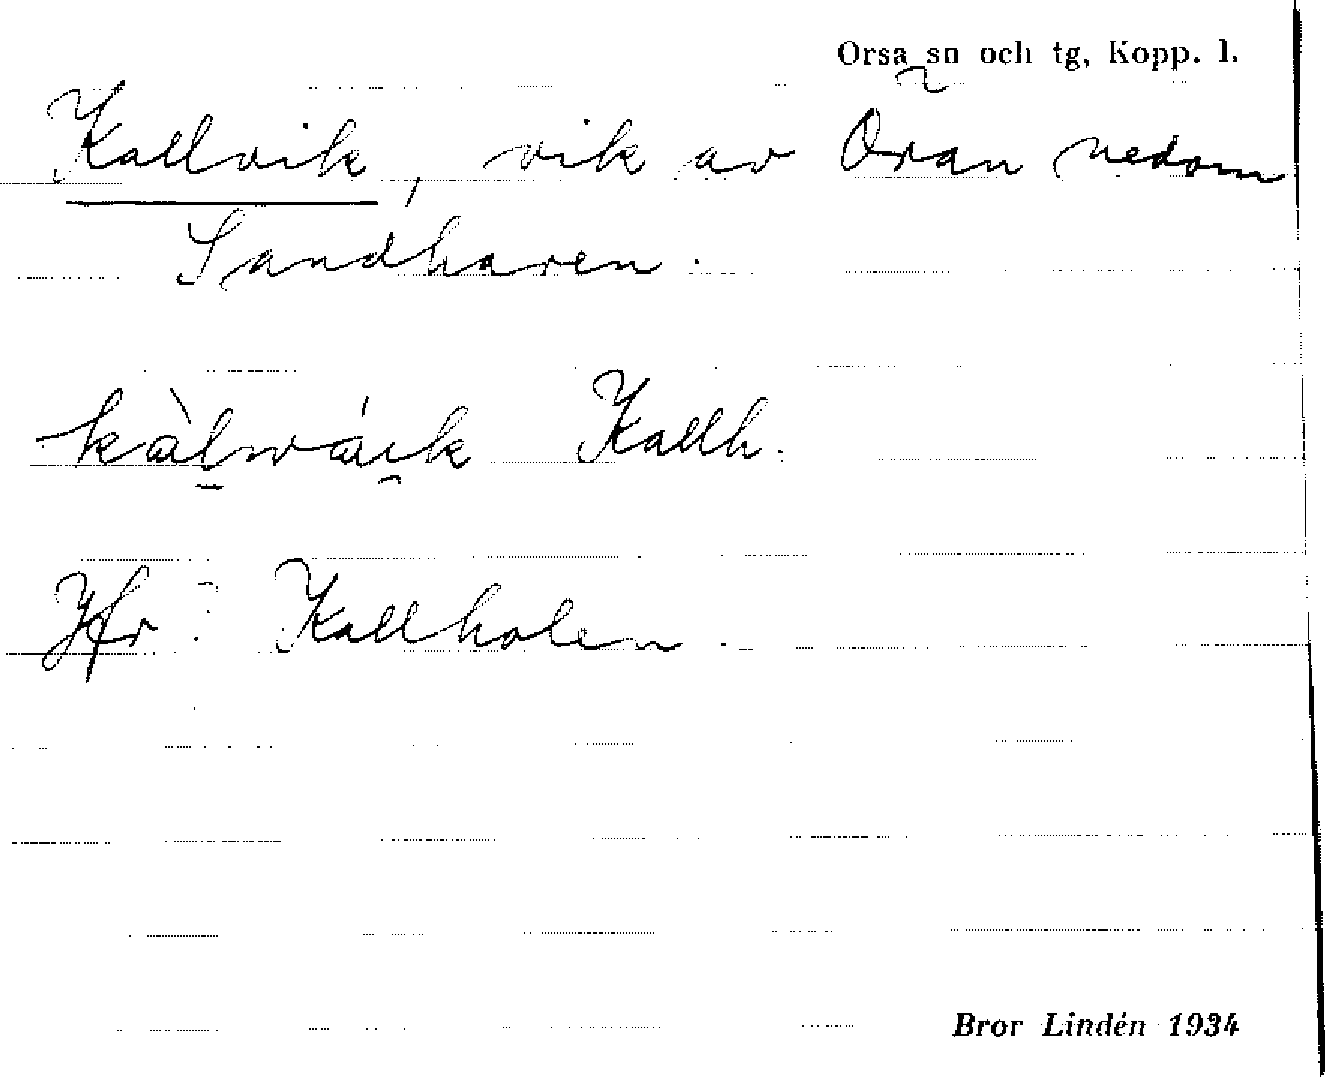 Orsa sn och tg, Kopp. l.
Kallvik, vik av Oran nedom
Sandharen.
kàlwái̯k Kallh.
Jfr: Kallholen.
Bror Lindén 1934